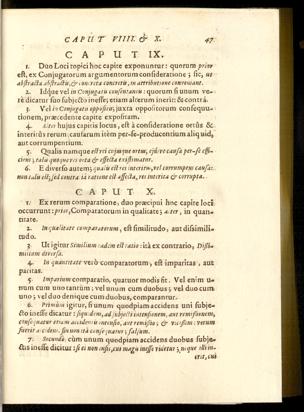 CAPUT VIIII. & X. 47
CAPUT IX.
1. Duo Loci topici hoc capite exponuntur: quorum prior
est, ex Conjugatorum argumentorum consideratione; sic, ut
abstracta abstractis, & concreta concretis, in attributione conveniant.
2. Idque vel in Conjugatis consentaneis: quorum si unum ve-
rè dicatur suo subjecto inesse; etiam alterum inerit: & contrà.
3. Vel in Conjugatis oppositis; juxta oppositorum consequu-
tionem, præcedente capite expositam.
4. Alter hujus capitis locus, est à consideratione ortûs &
interitûs rerum: causarum item per-se-producentium aliquid,
aut corrumpentium.
5. Qualis namque est rei cujusque ortus, ejusve causa per-se effi-
ciens; talis quoque res orta & effecta existimatur.
6. E diverso autem; qualis est rei interitus, vel corrumpens causa:
non talis est; sed contrà ratione est affecta, res interita & corrupta.
CAPUT X.
1. Ex rerum comparatione, duo præcipui hac capite loci
occurrunt: prior, Comparatorum in qualitate; alter, in quan-
titate.
2. In qualitate comparatorum, est similitudo, aut dissimili-
tudo.
3. Ut igitur Similium eadem est ratio: ità ex contrario, Dissi-
milium diversa.
4. In quantitate verò comparatorum, est imparitas, aut
paritas.
5. Imparium comparatio, quatuor modis fit. Vel enim u-
num cum uno tantùm; vel unum cum duobus; vel duo cum
uno; vel duo denique cum duobus, comparantur.
6. Primùm igitur, si unum quodpiam accidens uni subje-
cto inesse dicatur: siquidem, ad subjecti intensionem, aut remissionem,
consequatur etiam accidentis intensio, aut remissio; & vicissim: verum
fuerit accidens. sin non ità consequatur; falsum.
7. Secundò, cùm unum quodpiam accidens duobus subje-
ctis inesse dicitur: si ei non insit, cui magis inesse videtur; neque illi in-
erit, cui